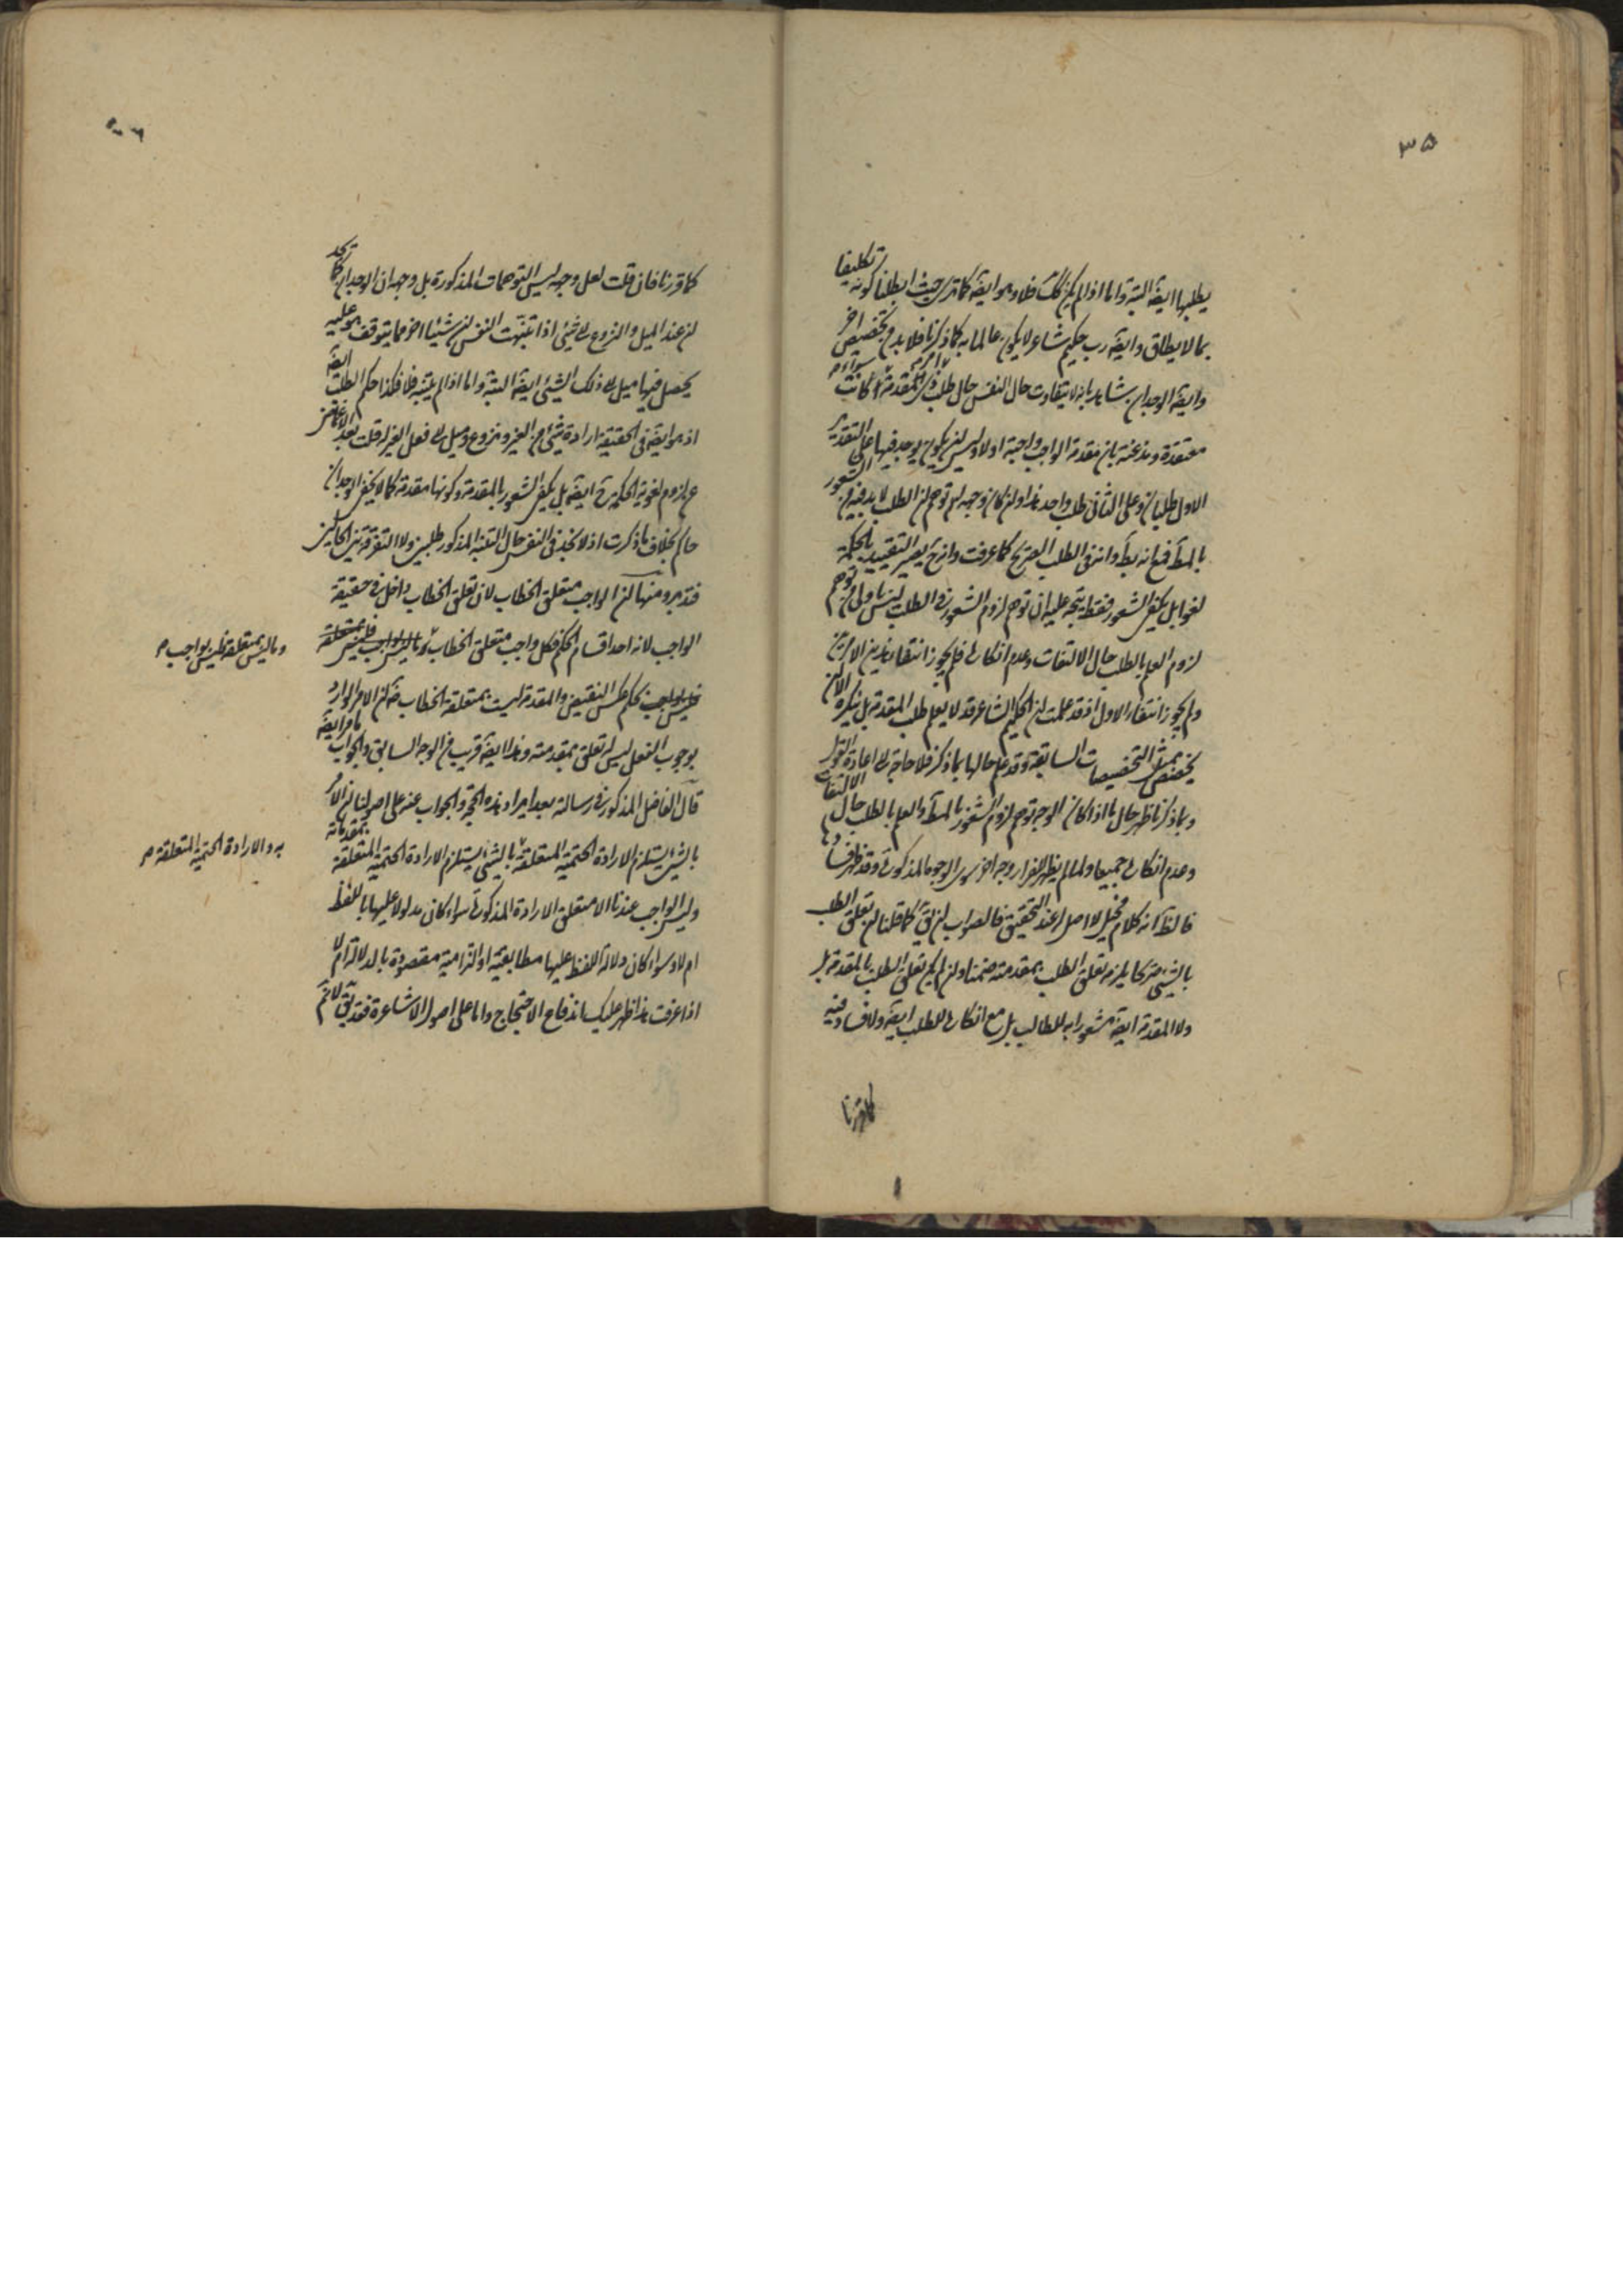 ٣٥
يطلبها ايضاً البتة واما اذا لم يكن كك فلا وهو ايضاً كما ترى حيث ابطلنا كونه تكليفا
بما لا يطاق وايضاً رب حكيم شاعر لا يكون عالما به كما ذكرنا فلا بد من تخصيص اخر
وايضاً الوجدان شاهد بانه لا يتفاوت حال النفس حال طلب المقدمة سواء كانت
معتقدة ومذعنة بان مقدمة الواجب واجبة اولا وليس ان يكون يوجد فيها على التقدير
الاول طلبان وعلى الثاني طلب واحد هذا وان كان وجه توهم ان الطلب لا بد فيه من الشعور
بالمط فمع انه بط وانه في الطلب الصريح كما عرفت وانه ح يصير التقييد بالحكمة
لغوا بل يكفي الشعور فقط يتجه عليه ان توهم لزوم الشعور في الطلب ليس باولى من توهم
لزوم العلم بالطلب حال الالتفات وعدم انكاره فلم يجوز انتفاء هذين الامرين
ولم يجوز انتفاء الاول اذ قد علمت ان الحكيم الشاعر قد لا يعلم طلب المقدمة بل ينكره الا ان
يخصص بمثل التخصيصات السابقة وقد علم حالها بما ذكر فلا حاجة الى اعادة القول
وبما ذكرنا ظهر حال ما اذا كان الوجه توهم لزوم الشعور بالمط والعلم بالطلب حال الالتفات
وعدم انكاره جميعا ولما لم يظهر للفرار وجه اخر سوى الوجوه المذكورة وقد ظهر فسادها
فالظ انه كلام مخيل لا اصل له عند التحقيق فالصواب ان يق كما قلنا ان تعلق الطلب
بالشيء صريحا يلزمه تعلق الطلب بمقدمته ضمنا وان لم يكن تعلق الطلب بالمقدمة بل
ولا المقدمة ايضاً مشعورا به للطالب بل مع انكاره للطلب ايضاً ولا فساد فيه
كما قررنا
كما قررنا فان قلت لعل وجهه ليس التوهمات المذكورة بل وجهه ان الوجدان كما تجد
ان عند الميل والنزوع الى شيء اذا تنبهت النفس ان شيئا اخر مما يتوقف هو عليه
يحصل فيها ميل الى ذلك الشيء ايضاً البتة واما اذا لم يتنبه فلا فكذا حكم الطلب ايضاً
اذ هو ايضاً في الحقيقة ارادة شيء من الغير ونزوع وميل الى فعل الغير له قلت بعد الاغماض
عن لزوم لغوية الحكيم ح ايضاً بل يكفي الشعور بالمقدمة وكونها مقدمة كما لا يخفى الوجدان
حاكم بخلاف ما ذكرت اذ لا نجد في النفس حال التنبه المذكور طلبين ولا التفرقة بين الحالين
فتدبر ومنها ان الواجب متعلق الخطاب لان تعلق الخطاب داخل في حقيقة
الواجب لانه احد اقسام الحكم فكل واجب متعلق الخطاب
وما ليس بمتعلقه فليس بواجب م
بحكم عكس النقيض والمقدمة ليست بمتعلقة الخطاب ضرورة ان الامر الوارد
بوجوب الفعل ليس له تعلق بمقدمته وهذا ايضاً قريب من الوجه السابق والجواب ما مر ايضاً
قال الفاضل المذكور في رسالته بعد ايراد هذه الحجة والجواب عنه على اصولنا ان الامر
بالشيء يستلزم الارادة الحتمية المتعلقة
به والارادة الحتمية المتعلقة م
بالشيء يستلزم الارادة الحتمية المتعلقة بمقدماته
وليس الواجب عندنا الا متعلق الارادة المذكورة سواء كان مدلولا عليها باللفظ
ام لا وسواء كان دلالة اللفظ عليها مطابقية او التزامية مقصودة بالدلالة ام لا
اذا عرفت هذا ظهر عليك اندفاع الاحتجاج واما على اصول الاشاعرة فقد يق لا نم